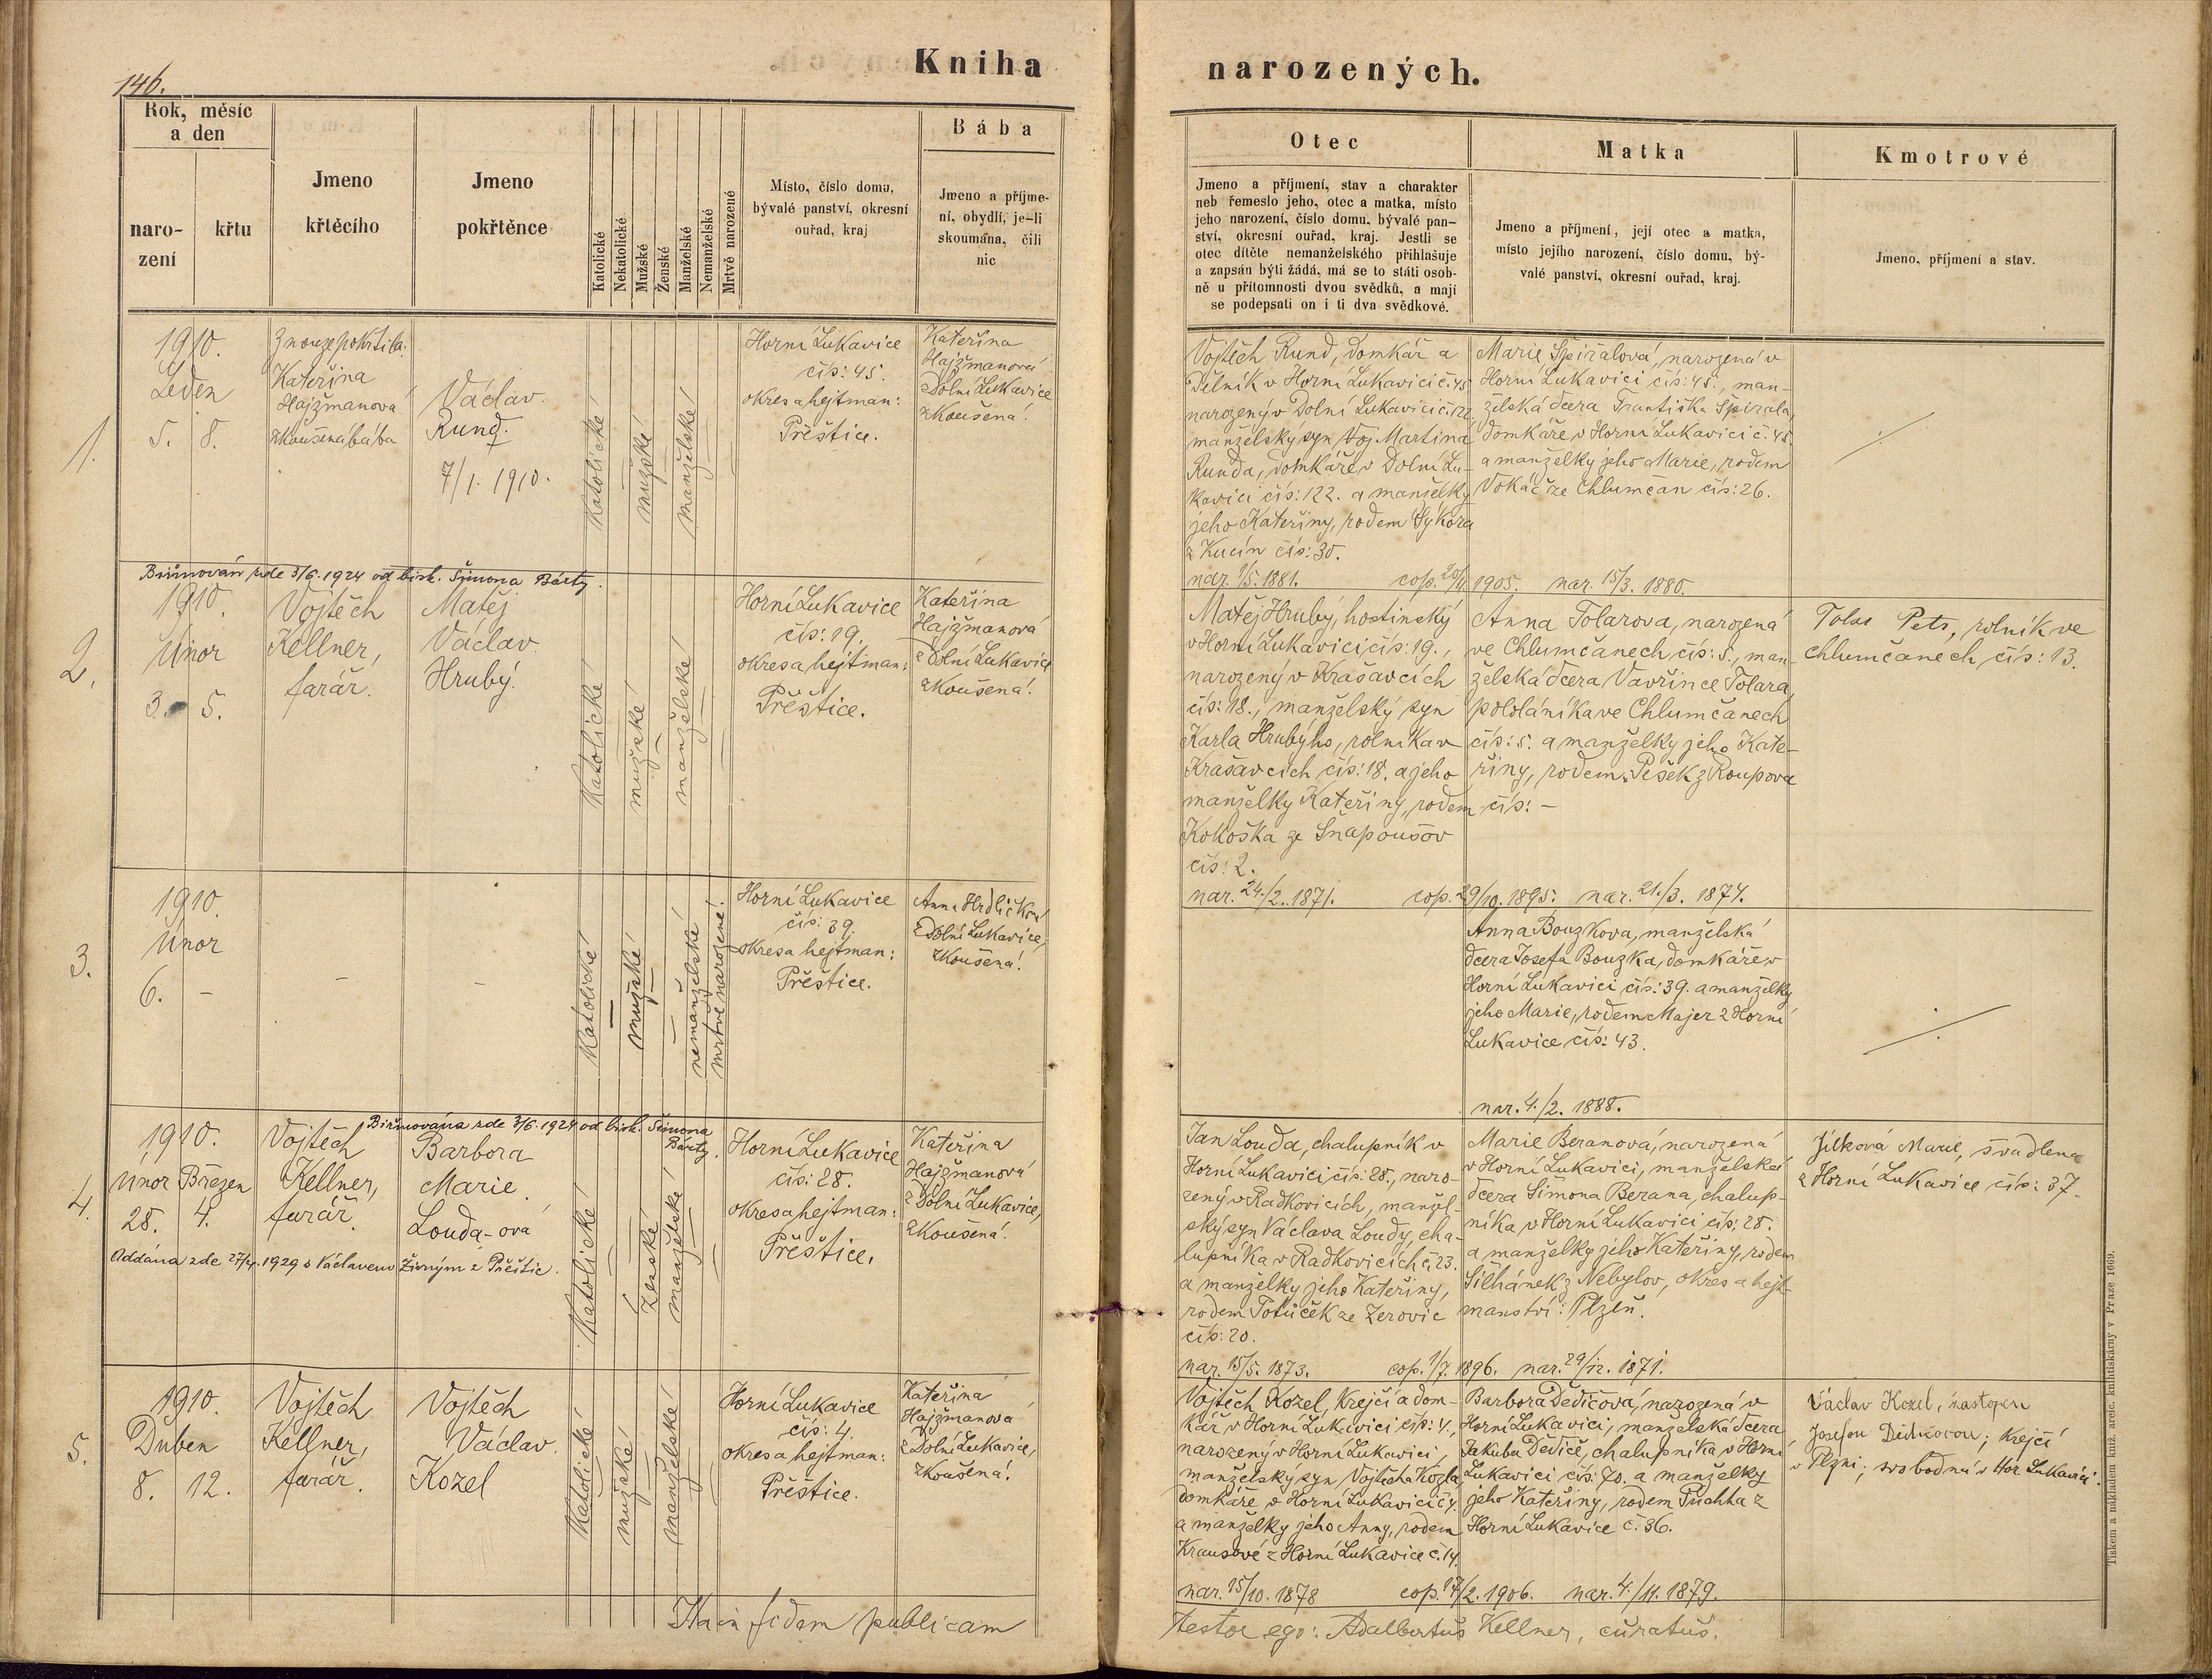 146.
Kniha
narozených.
Rok, měsíc
a den
naro-
zení
křtu
Jmeno
křtěcího
Jmeno
pokřtěnce
Katolické
Nekatolické
Mužské
Ženské
Manželské
Nemanželské
Mrtvě narozené
Místo, číslo domu,
bývalé panství, okresní
ouřad, kraj
Bába
Jmeno a příjme-
ní, obydlí, je-li
skoumána, čili
nic
Otec
Jmeno a příjmení, stav a charakter
neb řemeslo jeho, otec a matka, místo
jeho narození, číslo domu, bývalé pan-
ství, okresní ouřad, kraj. Jestli se
otec dítěte nemanželského přihlašuje
a zapsán býti žádá, má se to státi osob-
ně u přítomnosti dvou svědků, a mají
se podepsati on i ti dva svědkové.
Matka
Jmeno a příjmení, její otec a matka,
místo jejího narození, číslo domu, bý-
valé panství, okresní ouřad, kraj.
Kmotrové
Jmeno, příjmení a stav.
1.
1910.
Leden
5. 8.
Z nouze pokřtila:
Kateřina
Hajžmanová
zkoušená bába
Václav
Rund.
7/1. 1910.
Katolické
mužské
manželské
Horní Lukavice
čís: 45.
okres a hejtman:
Přeštice.
Kateřina
Hajžmanová
z Dolní Lukavice
zkoušená.
Vojtěch Rund, domkář a
dělník v Horní Lukavici č. 45
narozený v Dolní Lukavici č. 122
manželský syn Voj. Martina
Runda, domkáře v Dolní Lu-
kavici čís: 122. a manželky
jeho Kateřiny, rodem Sýkora
z Kucín čís: 30.
nar. 1/5. 1881. cop. 20/11 1905. nar. 15/3. 1880.
Marie Špiralová, narozená v
Horní Lukavici čís: 45., man-
želská dcera Františka Špirala,
domkáře v Horní Lukavici č. 45
a manželky jeho Marie, rodem
Vokáč ze Chlumčan čís: 26.
Biřmován zde 3/6. 1924 od bisk. Šimona Bárty.
2.
1910.
Únor
3. 5.
Vojtěch
Kellner,
farář.
Matěj
Václav
Hrubý.
Katolické
mužské
manželské
Horní Lukavice
čís: 19.
okres a hejtman:
Přeštice.
Kateřina
Hajžmanová
z Dolní Lukavice
zkoušená.
Matěj Hrubý, hostinský
v Horní Lukavici čís: 19.,
narozený v Krašavcích
čís: 18., manželský syn
Karla Hrubýho, rolníka v
Krašavcích čís: 18. a jeho
manželky Kateřiny, rodem
Kokoška ze Šnapoušov
čís: 2.
nar. 24./2. 1871. cop. 29/10. 1895. nar. 21./3. 1874.
Anna Tolarova, narozená
ve Chlumčanech čís: 5., man-
želská dcera Vavřince Tolara,
pololáníka ve Chlumčanech
čís: 5. a manželky jeho Kate-
řiny, rodem Pešek z Roupova
čís: -
Tolar Petr, rolník ve
Chlumčanech čís: 13.
3.
1910.
Únor
6. -
-
-
Katolické
mužské
nemanželské
mrtvě narozené!
Horní Lukavice
čís: 39.
okres a hejtman:
Přeštice.
Anna Hrdličková
z Dolní Lukavice,
zkoušená.
Anna Bouzkova, manželská
dcera Josefa Bouzka, domkáře v
Horní Lukavici čís: 39. a manželky
jeho Marie, rodem Majer z Horní
Lukavice čís: 43.
nar. 4./2. 1888.
Biřmována zde 3/6. 1924 od bisk. Šimona
Bárty.
4.
1910.
Únor Březen
28. 4.
Vojtěch
Kellner,
farář.
Barbora
Marie
Louda-ová
Oddána zde 27/4. 1929 s Václavem Živným z Přeštic.
Katolické
ženské
manželské
Horní Lukavice
čís: 28.
okres a hejtman:
Přeštice.
Kateřina
Hajžmanová
z Dolní Lukavice,
zkoušená.
Jan Louda, chalupník v
Horní Lukavici čís: 28., naro-
zený v Radkovicích, manžel-
ský syn Václava Loudy, cha-
lupníka v Radkovicích č. 23.
a manželky jeho Kateřiny,
rodem Potůček ze Zerovic
čís: 20.
nar. 15/5. 1873. cop. 1/7. 1896. nar. 29/12. 1871.
Marie Beranová, narozená
v Horní Lukavici, manželská
dcera Šimona Berana, chalup-
níka v Horní Lukavici čís: 28.
a manželky jeho Kateřiny, rodem
Šilhánek z Nebylov, okres a hejt-
manství: Plzeň.
Jílková Marie, švadlena
z Horní Lukavice čís: 37.
5.
1910.
Duben
8. 12.
Vojtěch
Kellner,
farář.
Vojtěch
Václav
Kozel
Katolické
mužské
manželské
Horní Lukavice
čís: 4.
okres a hejtman:
Přeštice.
Kateřina
Hajžmanová
z Dolní Lukavice,
zkoušená.
Vojtěch Kozel, krejčí a dom-
kář v Horní Lukavici čís: 4.,
narozený v Horní Lukavici,
manželský syn Vojtěcha Kozla,
domkáře v Horní Lukavici č. 4.
a manželky jeho Anny, rodem
Krausové z Horní Lukavice č. 14.
nar. 15/10. 1878 cop. 17/2. 1906. nar. 4./11. 1879.
Barbora Dědičová, narozená v
Horní Lukavici, manželská dcera
Jakuba Dědiče, chalupníka v Horní
Lukavici čís: 70. a manželky
jeho Kateřiny, rodem Puchta z
Horní Lukavice č. 36.
Václav Kozel, zastoupen
Josefou Dědičovou; krejčí
v Plzni; svobodná v Hor. Lukavici.
Ita in fidem publicam
testor ego: Adalbertus Kellner, curatus.
Tiskem a nákladem kníž. arcib. knihtiskárny v Praze 1669.